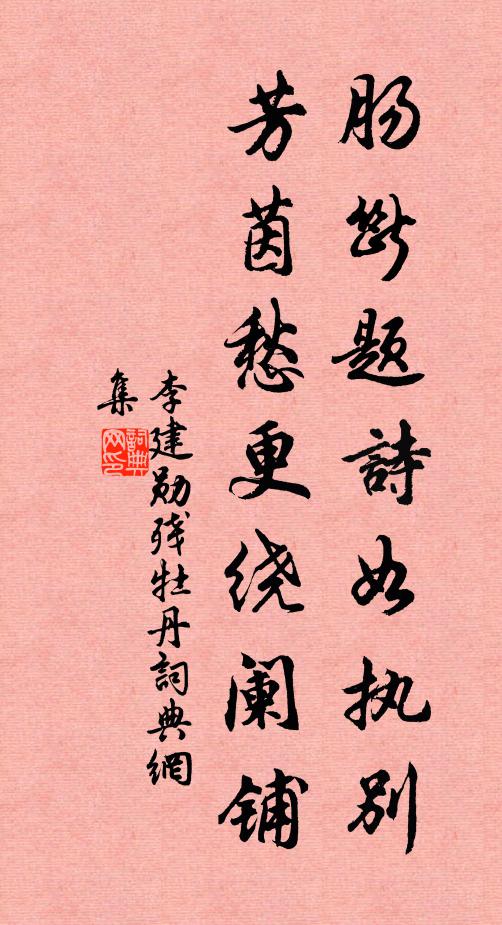 肠断题詩如执别
芳茵愁更绕阑铺
李建勋残牡丹詞典網
集
詞典网印